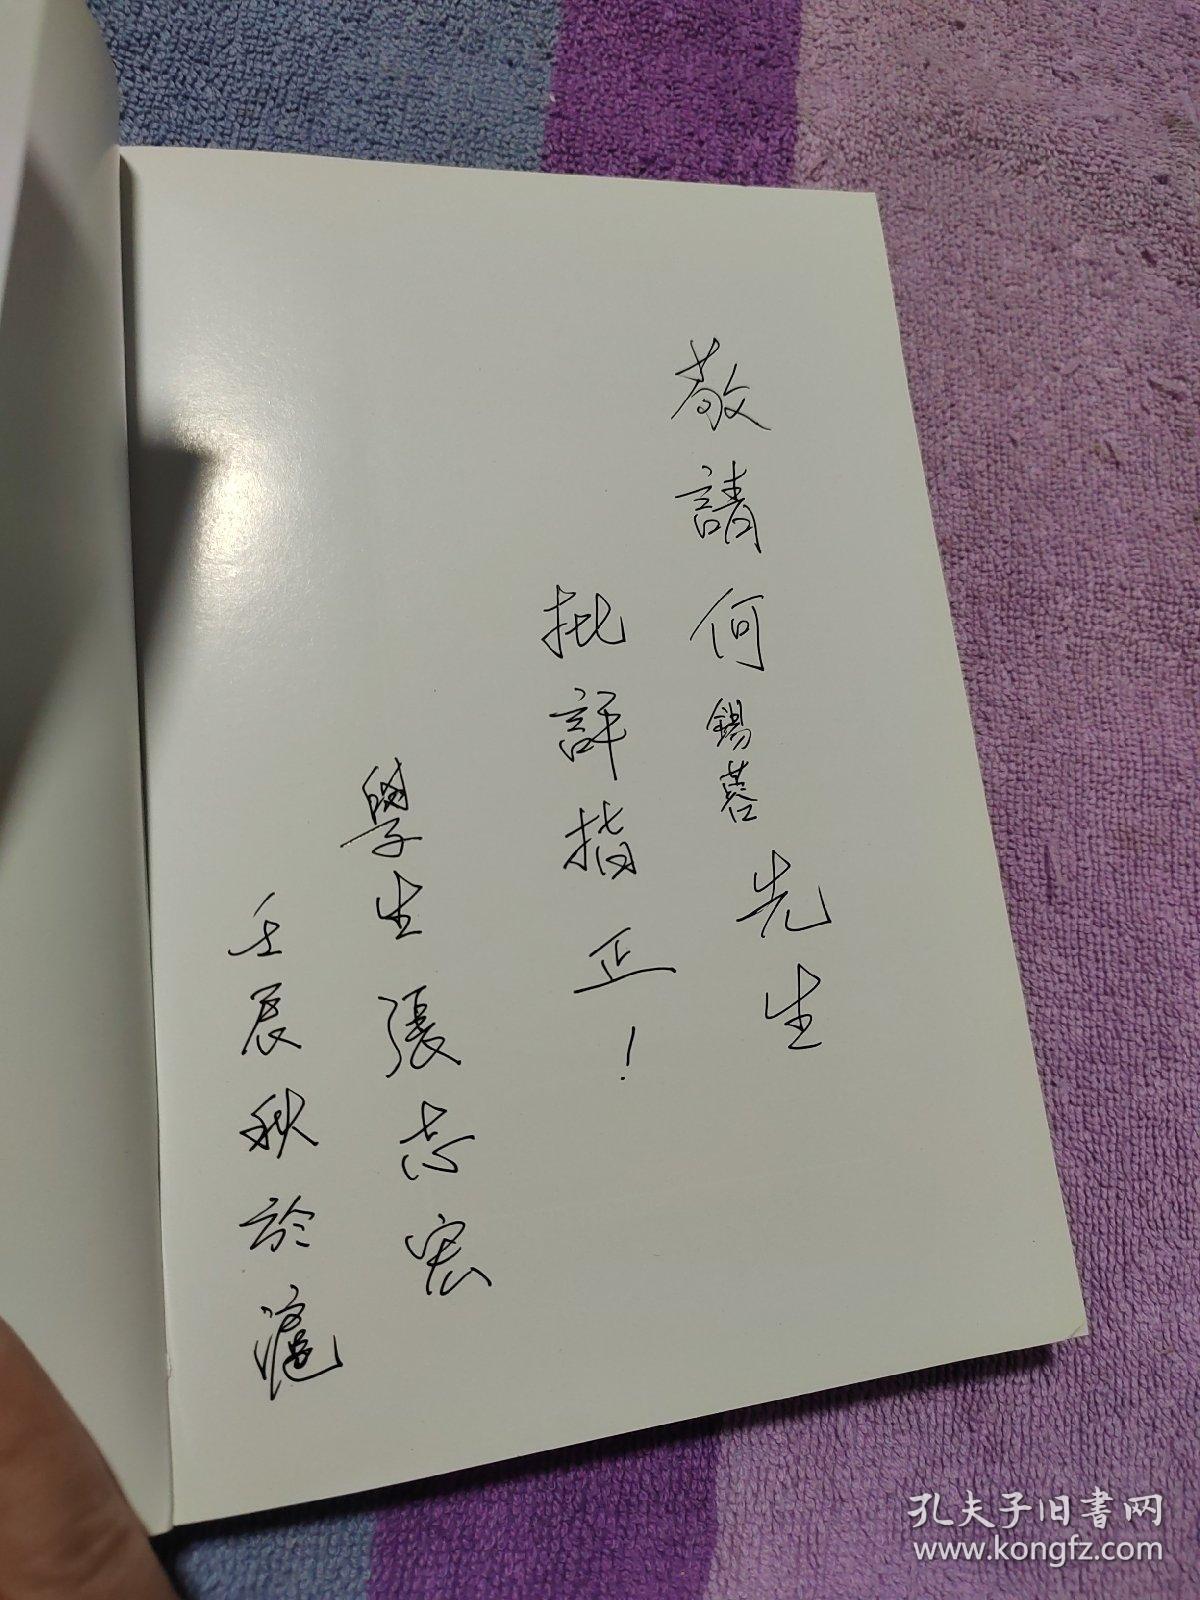 敬請何錫蓉先生
批評指正！
學生張志宏
壬辰秋於滬
孔夫子旧书网
www.kongfz.com